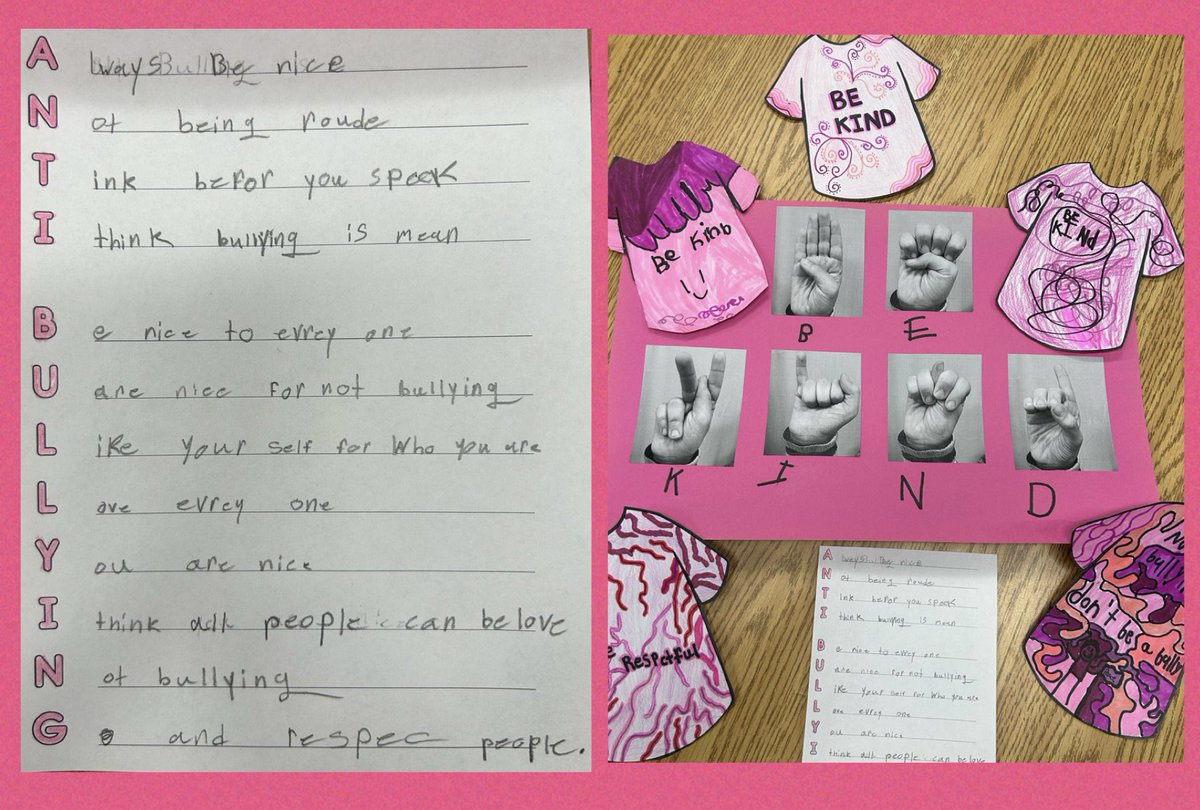 A lways Be nice
N ot being roude
T ink befor you speek
I think bullying is mean
B e nice to evrey one
U are nice for not bullying
L ike your self for who you are
L ove evrey one
Y ou are nice
I think all people can be love
N ot bullying
G o and respec people.
BE
KIND
Be kind
BE
KINd
B E
K I N D
Respectful
bully
don't be a bully
A lways Be nice
N ot being roude
T ink befor you speek
I think bullying is mean
B e nice to evrey one
U are nice for not bullying
L ike your self for who you are
L ove evrey one
Y ou are nice
I think all people can be love